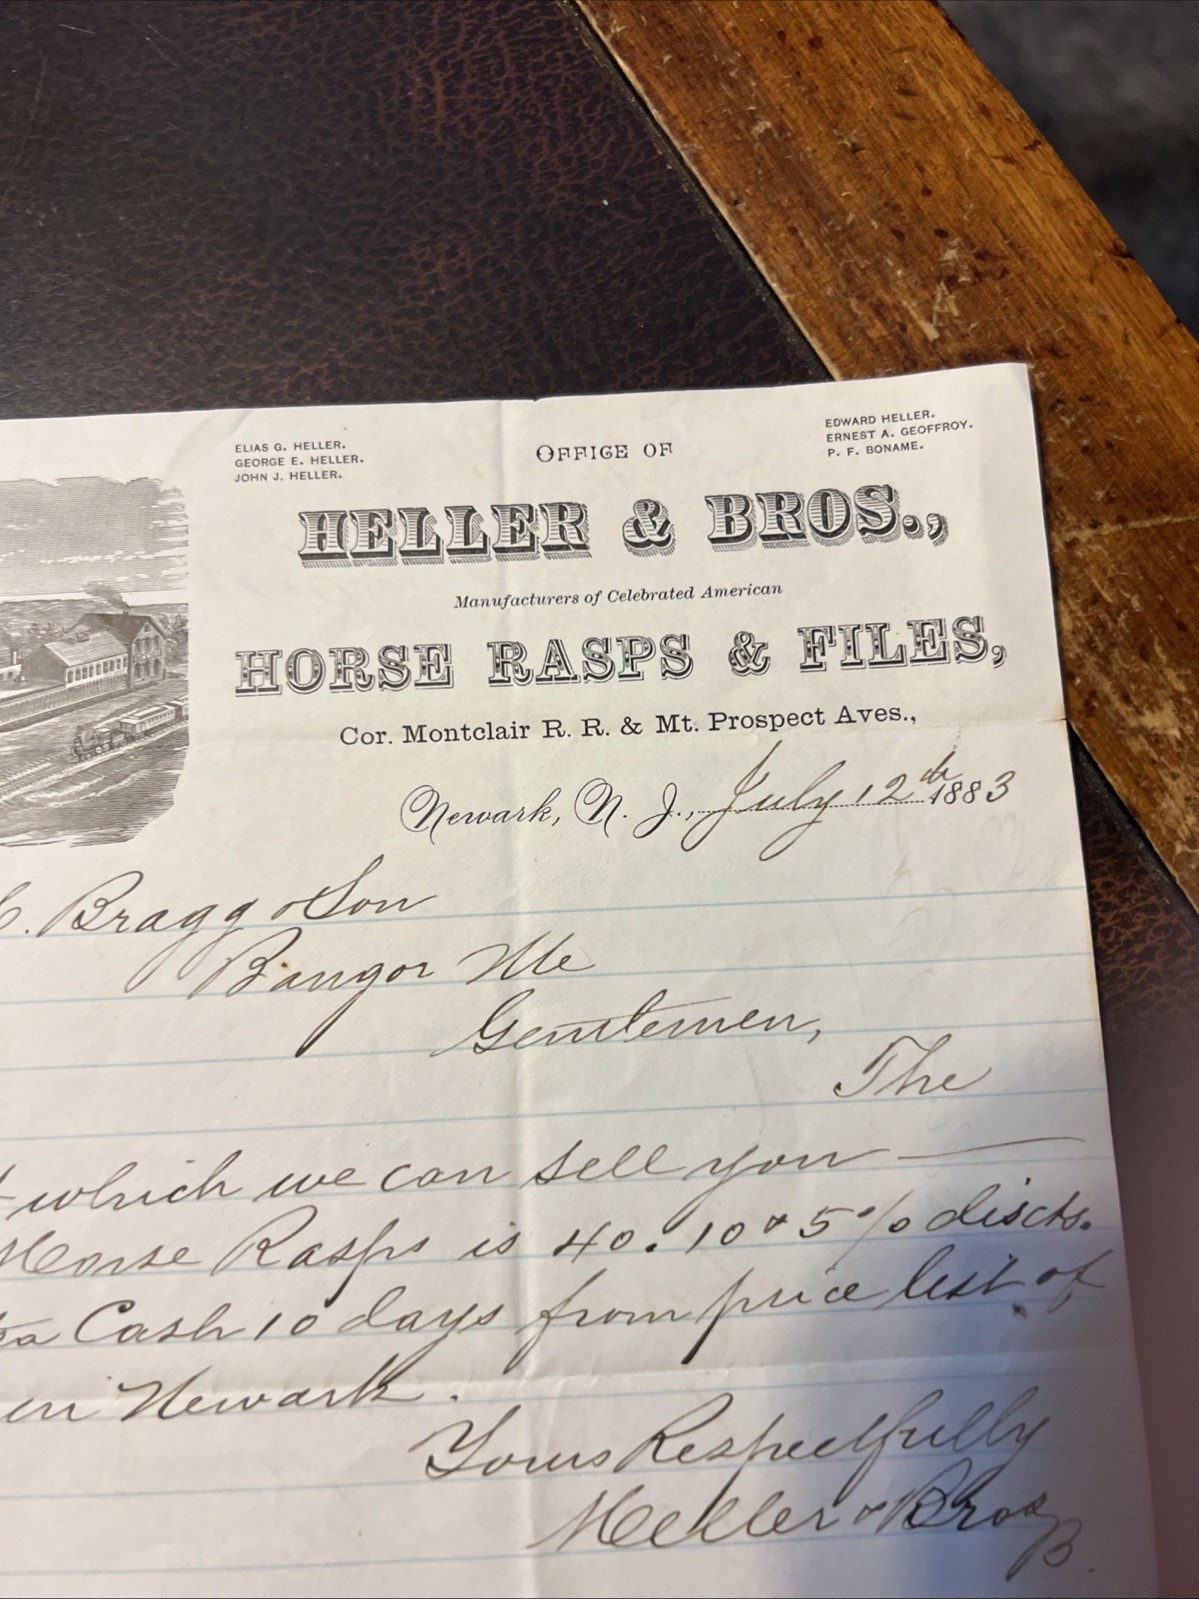 ELIAS G. HELLER.
GEORGE E. HELLER.
JOHN J. HELLER.
OFFICE OF
EDWARD HELLER.
ERNEST A. GEOFFROY.
P. F. BONAME.
HELLER & BROS.,
Manufacturers of Celebrated American
HORSE RASPS & FILES,
Cor. Montclair R. R. & Mt. Prospect Aves.,
Newark, N. J., July 12th 1883
C. Bragg & Son
Bangor Me
Gentlemen,
The
which we can sell you —
Horse Rasps is 40. 10 & 5% discts.
Cash 10 days from price list of
in Newark.
Yours Respectfully
Heller & Bros
B.